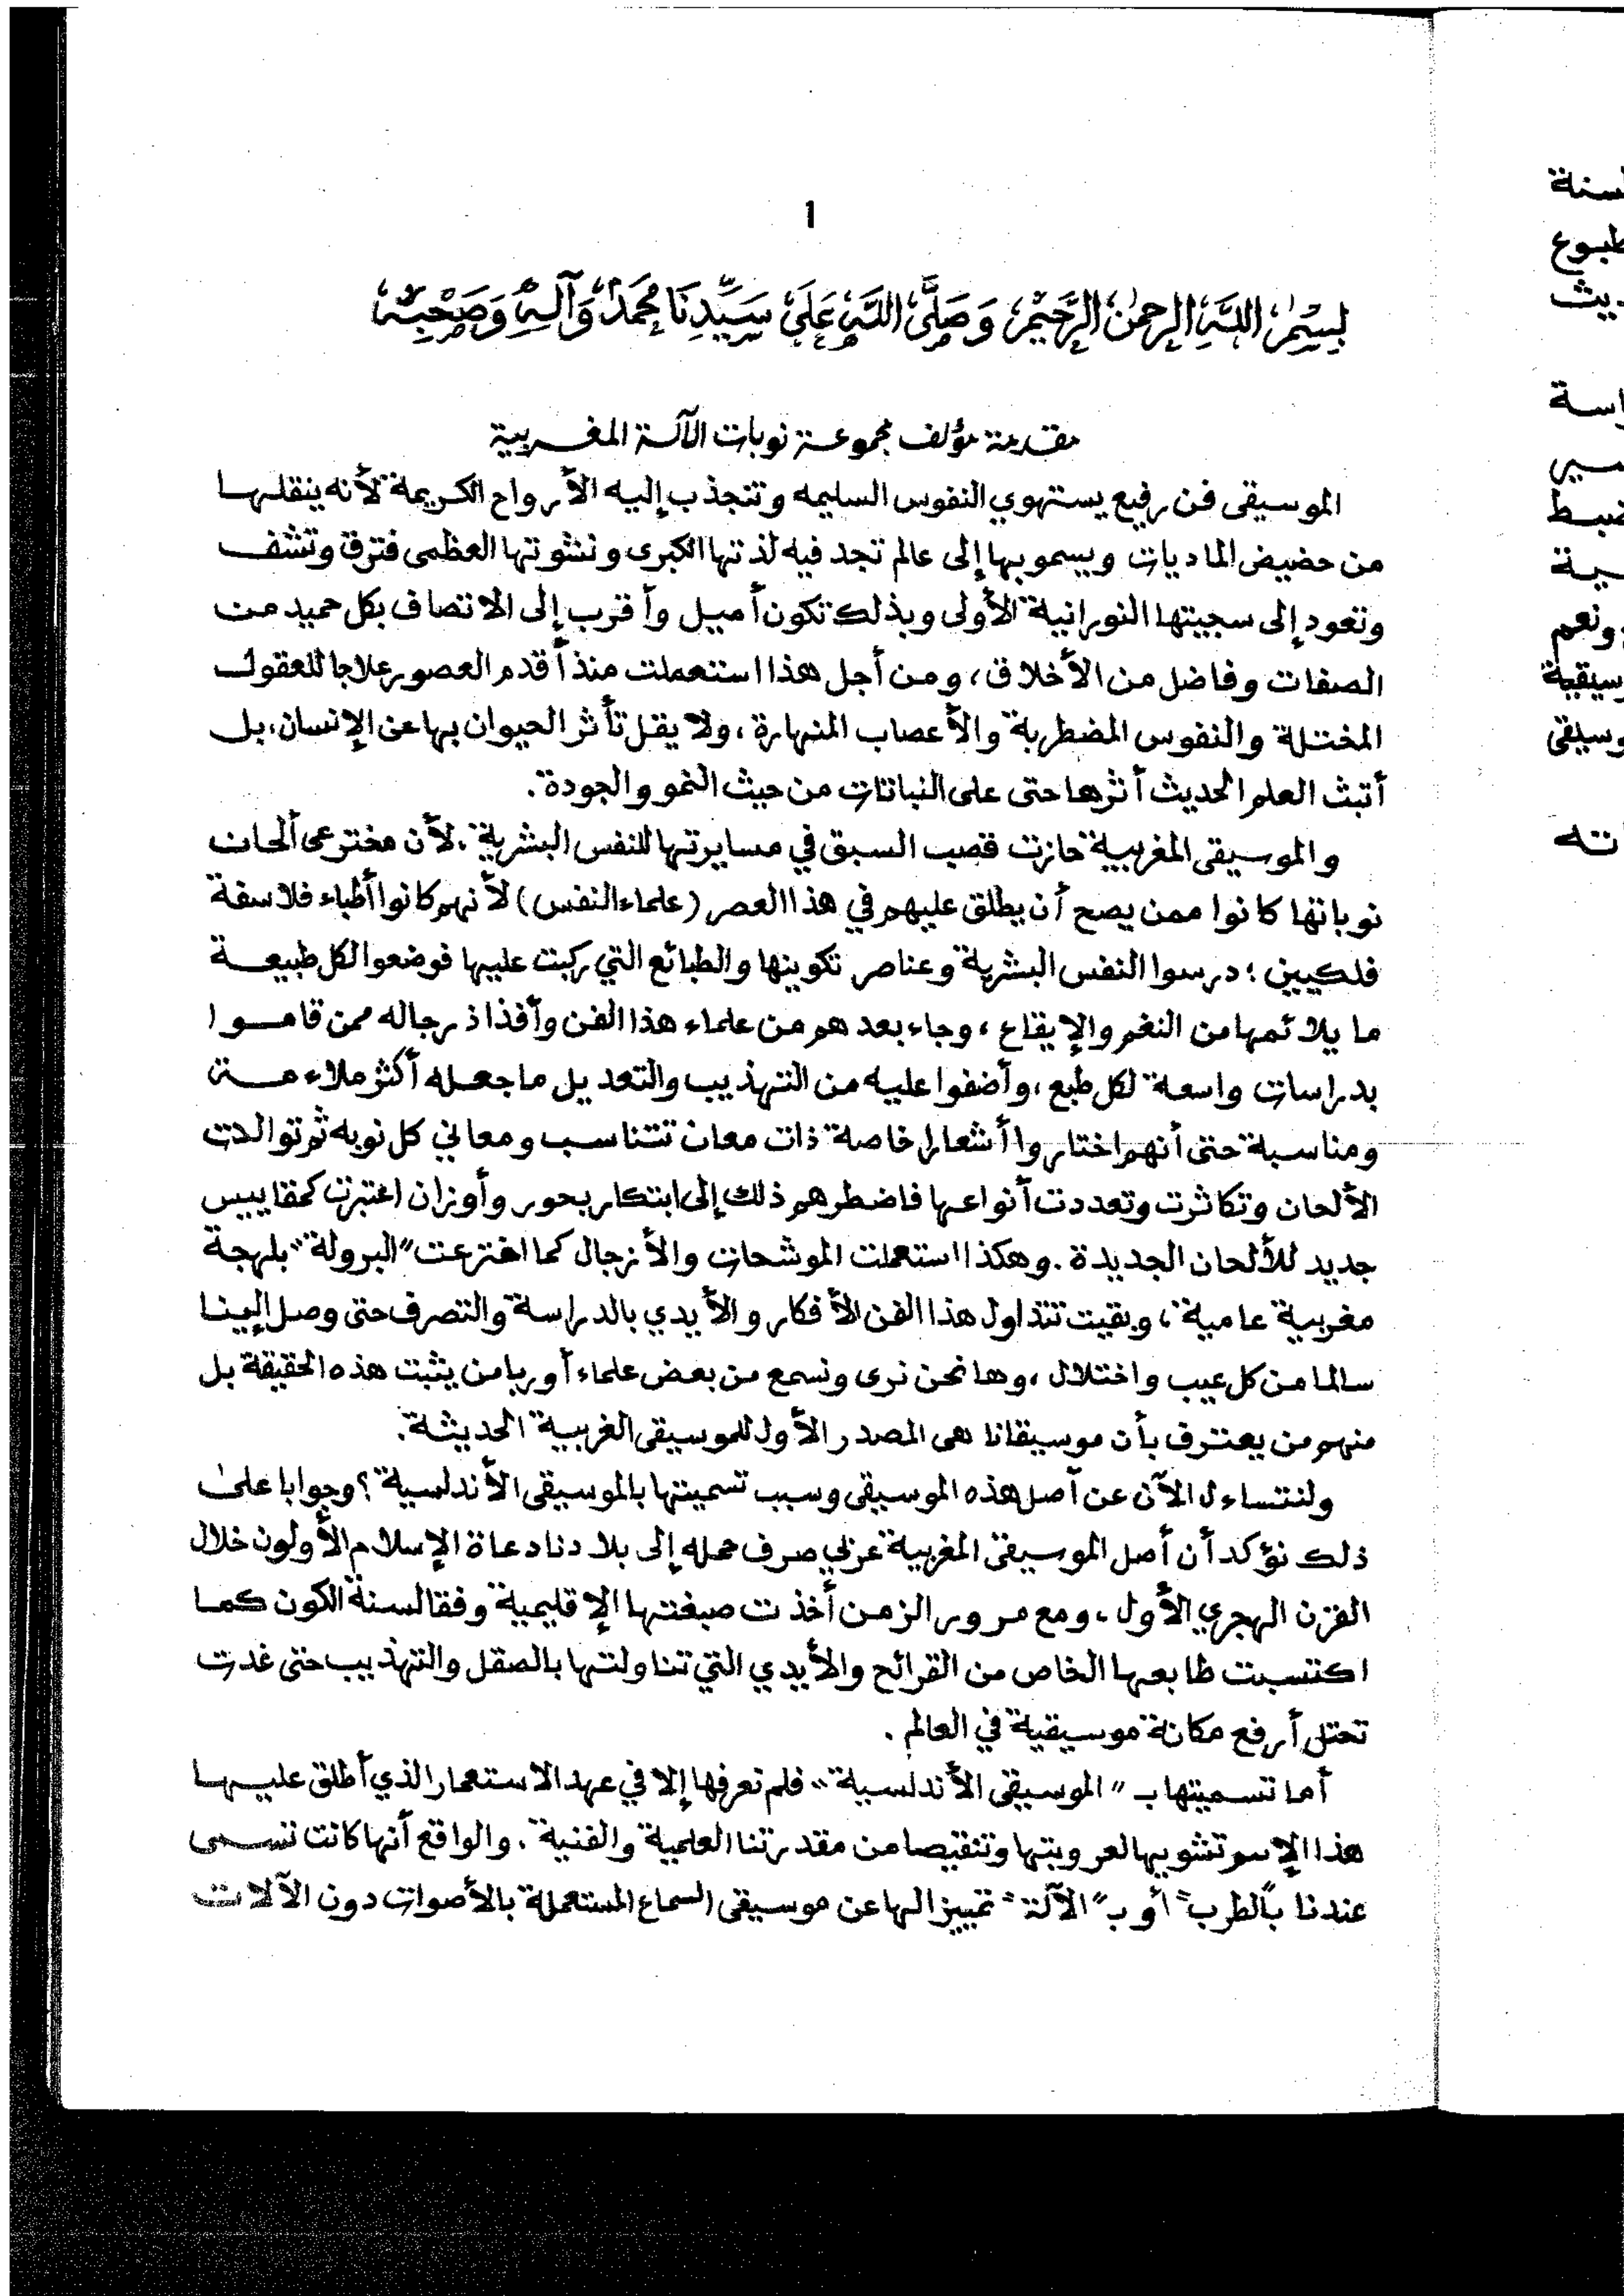 1
بِسْمِ اللَّهِ الرحمٰنِ الرَّحِيْمِ وَصَلَّى اللَّهُ عَلَى سَيِّدِنَا مُحَمَّدٍ وَآلِهِ وَصَحْبِهِ
مقدمة مؤلف مجموعة نوبات الآلة المغربية
الموسيقى فن رفيع يستهوي النفوس السليمه وتنجذب إليه الأرواح الكريمة لأنه ينقلها
من حضيض الماديات ويسمو بها إلى عالم تجد فيه لذتها الكبرى ونشوتها العظمى فترق وتشف
وتعود إلى سجيتها النورانية الأولى وبذلك تكون أميل وأقرب إلى الاتصاف بكل حميد من
الصفات وفاضل من الأخلاق، ومن أجل هذا استعملت منذ أقدم العصور علاجا للعقول
المختلة والنفوس المضطربة والأعصاب المنهارة، ولا يقل تأثر الحيوان بها عن الإنسان، بل
أتبث العلم الحديث أثرها حتى على النباتات من حيث النمو والجودة.
والموسيقى المغربية حازت قصب السبق في مسايرتها للنفس البشرية. لأن مخترعى ألحان
نوباتها كانوا ممن يصح أن يطلق عليهم في هذا العصر (علماء النفس) لأنهم كانوا أطباء فلاسفة
فلكيين؛ درسوا النفس البشرية وعناصر تكوينها والطبائع التي ركبت عليها فوضعوا لكل طبيعة
ما يلائمها من النغم والإيقاع، وجاء بعدهم من علماء هذا الفن وأفذاذ رجاله ممن قاموا
بدراسات واسعة لكل طبع، وأضفوا عليه من التهذيب والتعديل ما جعله أكثر ملاءمة
ومناسبة حتى أنهم اختاروا أشعارا خاصة ذات معان تتناسب ومعاني كل نوبه ثم توالدت
الألحان وتكاثرت وتعددت أنواعها فاضطرهم ذلك إلى ابتكار بحور وأوزان اعتبرت كمقاييس
جديد للألحان الجديدة. وهكذا استعملت الموشحات والأزجال كما اخترعت "البرولة" بلهجة
مغربية عامية، وبقيت تتداول هذا الفن الأفكار والأيدي بالدراسة والتصرف حتى وصل إلينا
سالما من كل عيب واختلال، وها نحن نرى ونسمع من بعض علماء أوربا من يثبت هذه الحقيقة بل
منهم من يعترف بأن موسيقانا هى المصدر الأول للموسيقى الغربية الحديثة.
ولنتساءل الآن عن أصل هذه الموسيقى وسبب تسميتها بالموسيقى الأندلسية؟ وجوابا على
ذلك نؤكد أن أصل الموسيقى المغربية عربي صرف حمله إلى بلادنا دعاة الإسلام الأولون خلال
القرن الهجري الأول، ومع مرور الزمن أخذت صبغتها الإقليمية وفقا لسنة الكون كما
اكتسبت طابعها الخاص من القرائح والأيدي التي تناولتها بالصقل والتهذيب حتى غدت
تحتل أرفع مكانة موسيقية في العالم.
أما تسميتها ب "الموسيقى الأندلسية" فلم نعرفها إلا في عهد الاستعمار الذي أطلق عليها
هذا الإسم تشويها لعروبتها وتنقيصا من مقدرتنا العلمية والفنية. والواقع أنها كانت تسمى
عندنا ب"الطرب" أو ب"الآلة" تمييزا لها عن موسيقى السماع المستعملة بالأصوات دون الآلات